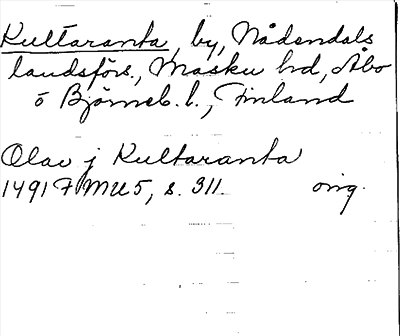 Kultaranta, by, Nådendals
landsförs., Masku hd, Åbo
o Björneb. l., Finland
Olav j Kultaranta
1491 FMU5, s. 311. orig.